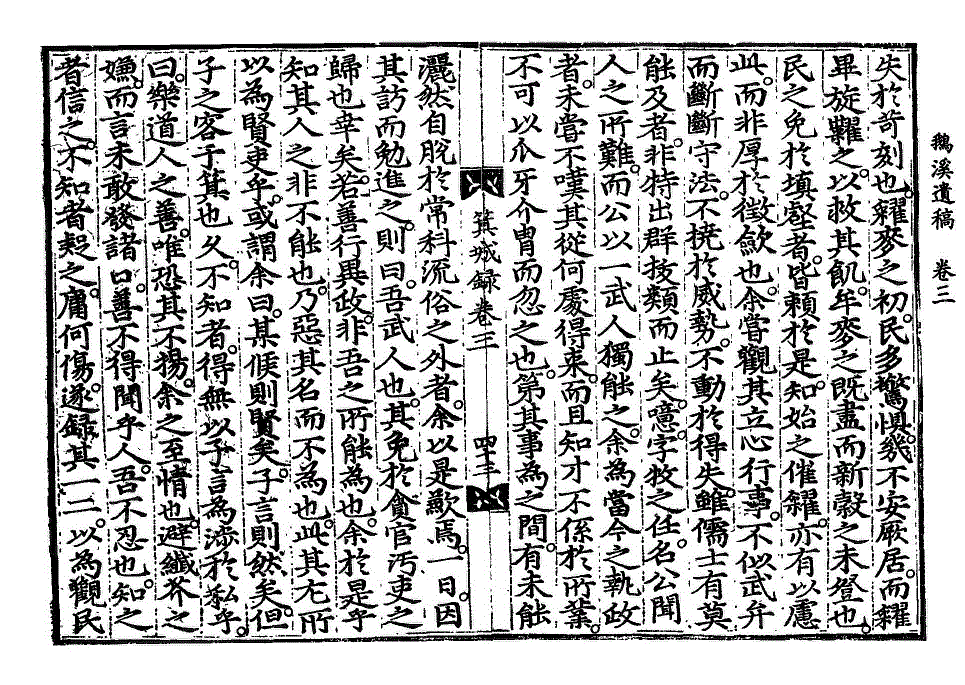 鵝溪遺稿 卷三
失於苛刻也。糴麥之初。民多驚惧。幾不安厥居。而糴
畢旋糶之。以救其飢。年麥之旣盡而新穀之未登也。
民之免於塡壑者。皆賴於是。知始之催糴。亦有以慮
此。而非厚於徵斂也。余嘗觀其立心行事。不似武弁
而斷斷守法。不撓於威勢。不動於得失。雖儒士有莫
能及者。非特出群拔類而止矣。噫。字牧之任。名公聞
人之所難。而公以一武人獨能之。余爲當今之執政
者。未嘗不嘆其從何處得來。而且知才不係於所業。
不可以爪牙介冑而忽之也。第其事爲之間。有未能
箕城録卷三
四三
灑然自脫於常科流俗之外者。余以是歉焉。一日。因
其訪而勉進之。則曰。吾武人也。其免於貪官汚吏之
歸也幸矣。若善行異政。非吾之所能爲也。余於是乎
知其人之非不能也。乃惡其名而不爲也。此其尤所
以爲賢吏乎。或謂余曰。某候則賢矣。子言則然矣。但
子之客于箕也久。不知者。得無以子言爲流於私乎。
曰。樂道人之善。唯恐其不揚。余之至情也。避纖芥之
嫌。而言未敢發諸口。善不得聞乎人。吾不忍也。知之
者信之。不知者疑之。庸何傷。遂録其一二。以爲觀民